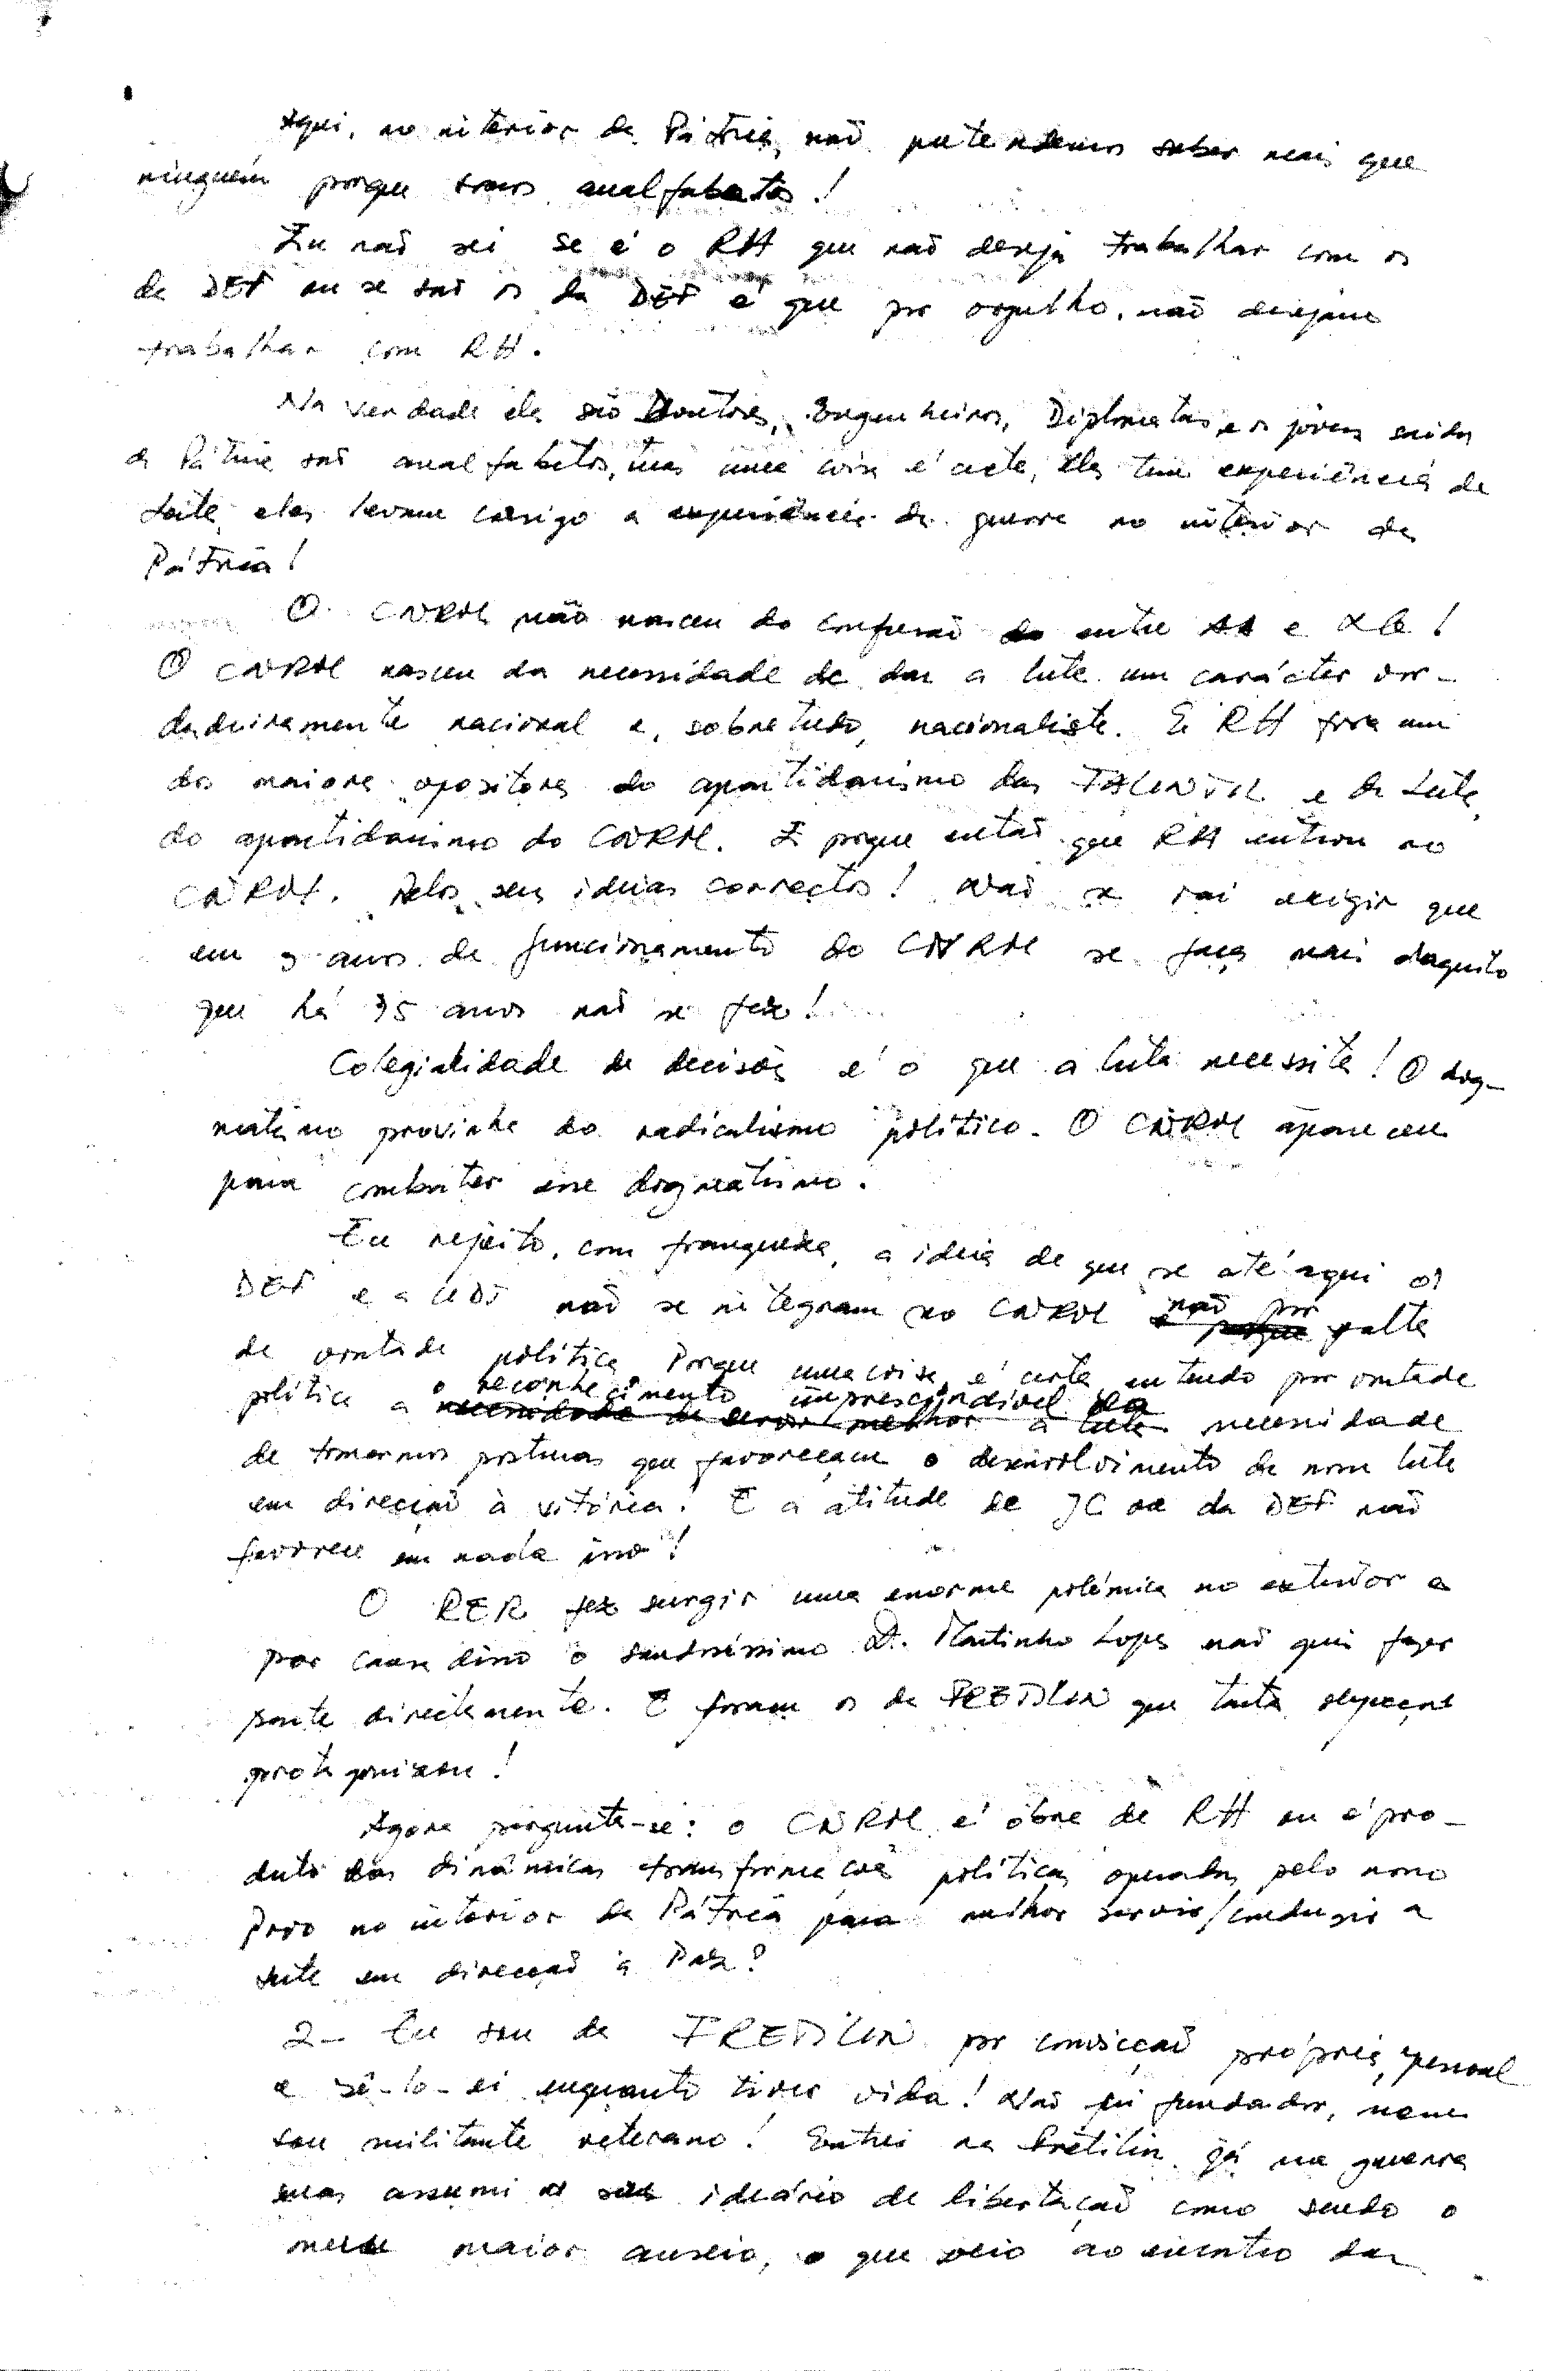 Aqui, no interior da Pátria, não pretendemos saber mais que
ninguém porque somos analfabetos!
Eu não sei se é o RH que não deseja trabalhar com os
da DEF ou se são os da DEF é que por orgulho, não desejam
trabalhar com RH.
Na verdade eles são Doutores, Engenheiros, Diplomatas, e os jovens saidos
da Pátria são analfabetos, mas uma coisa é certa, eles têm experiência de
Luta, eles levam consigo a experiência da guerra no interior da
Pátria!
O CNRM não nasceu da confusão entre e !
O CNRM nasceu da necessidade de dar a luta um carácter ver-
dadeiramente nacional e, sobretudo, nacionalista. E RH fora um
dos maiores opositores do apartidarismo das FALINTIL e da Luta,
do apartidarismo do CNRM. E porque então que RH entrou no
CNRM. Pelas suas ideias correctas! Não se vai exigir que
em anos de funcionamento do CNRM se faça mais daquilo
que há 15 anos não se fez!
Colegialidade de decisões é o que a luta necessita! O dog-
matismo provinha do radicalismo político. O CNRM apareceu
para combater esse dogmatismo.
Eu rejeito, com franqueza, a ideia de que se até aqui a
DEF e a UDT não se integram no CNRM não por falta
de vontade política. Porque uma coisa é certa, entendo por vontade
política o reconhecimento imprescindível da necessidade
de tomarmos posturas que favoreçam o desenvolvimento da nossa luta
em direcção à vitória! E a atitude de JC ou da DEF não
favorece em nada isso!
O RER fez surgir uma enorme polémica no exterior e
por causa disso o saudosíssimo D. Martinho Lopes não quis fazer
parte directamente. E foram os da FRETILIN que tanta
protagonizou!
Agora pergunta-se: o CNRM é obra de RH ou é pro-
duto das dinâmicas transformações políticas operadas pelo nosso
Povo no interior da Pátria para melhor servir/conduzir a
Luta em direcção à Paz?
2- Eu sou da FRETILIN por convicção própria, pessoal
e sê-lo-ei enquanto tiver vida! Não fui fundador, nem
sou militante veterano! Entrei na Fretilin já na guerra
mas assumi o seu ideário de libertação como sendo o
meu maior anseio, o que veio ao encontro das